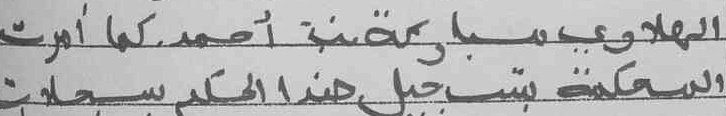 الهلاوي مباركة بنت أحمد. كما أمرت
المحكمة بتسجيل هذا الحكم بسجلات